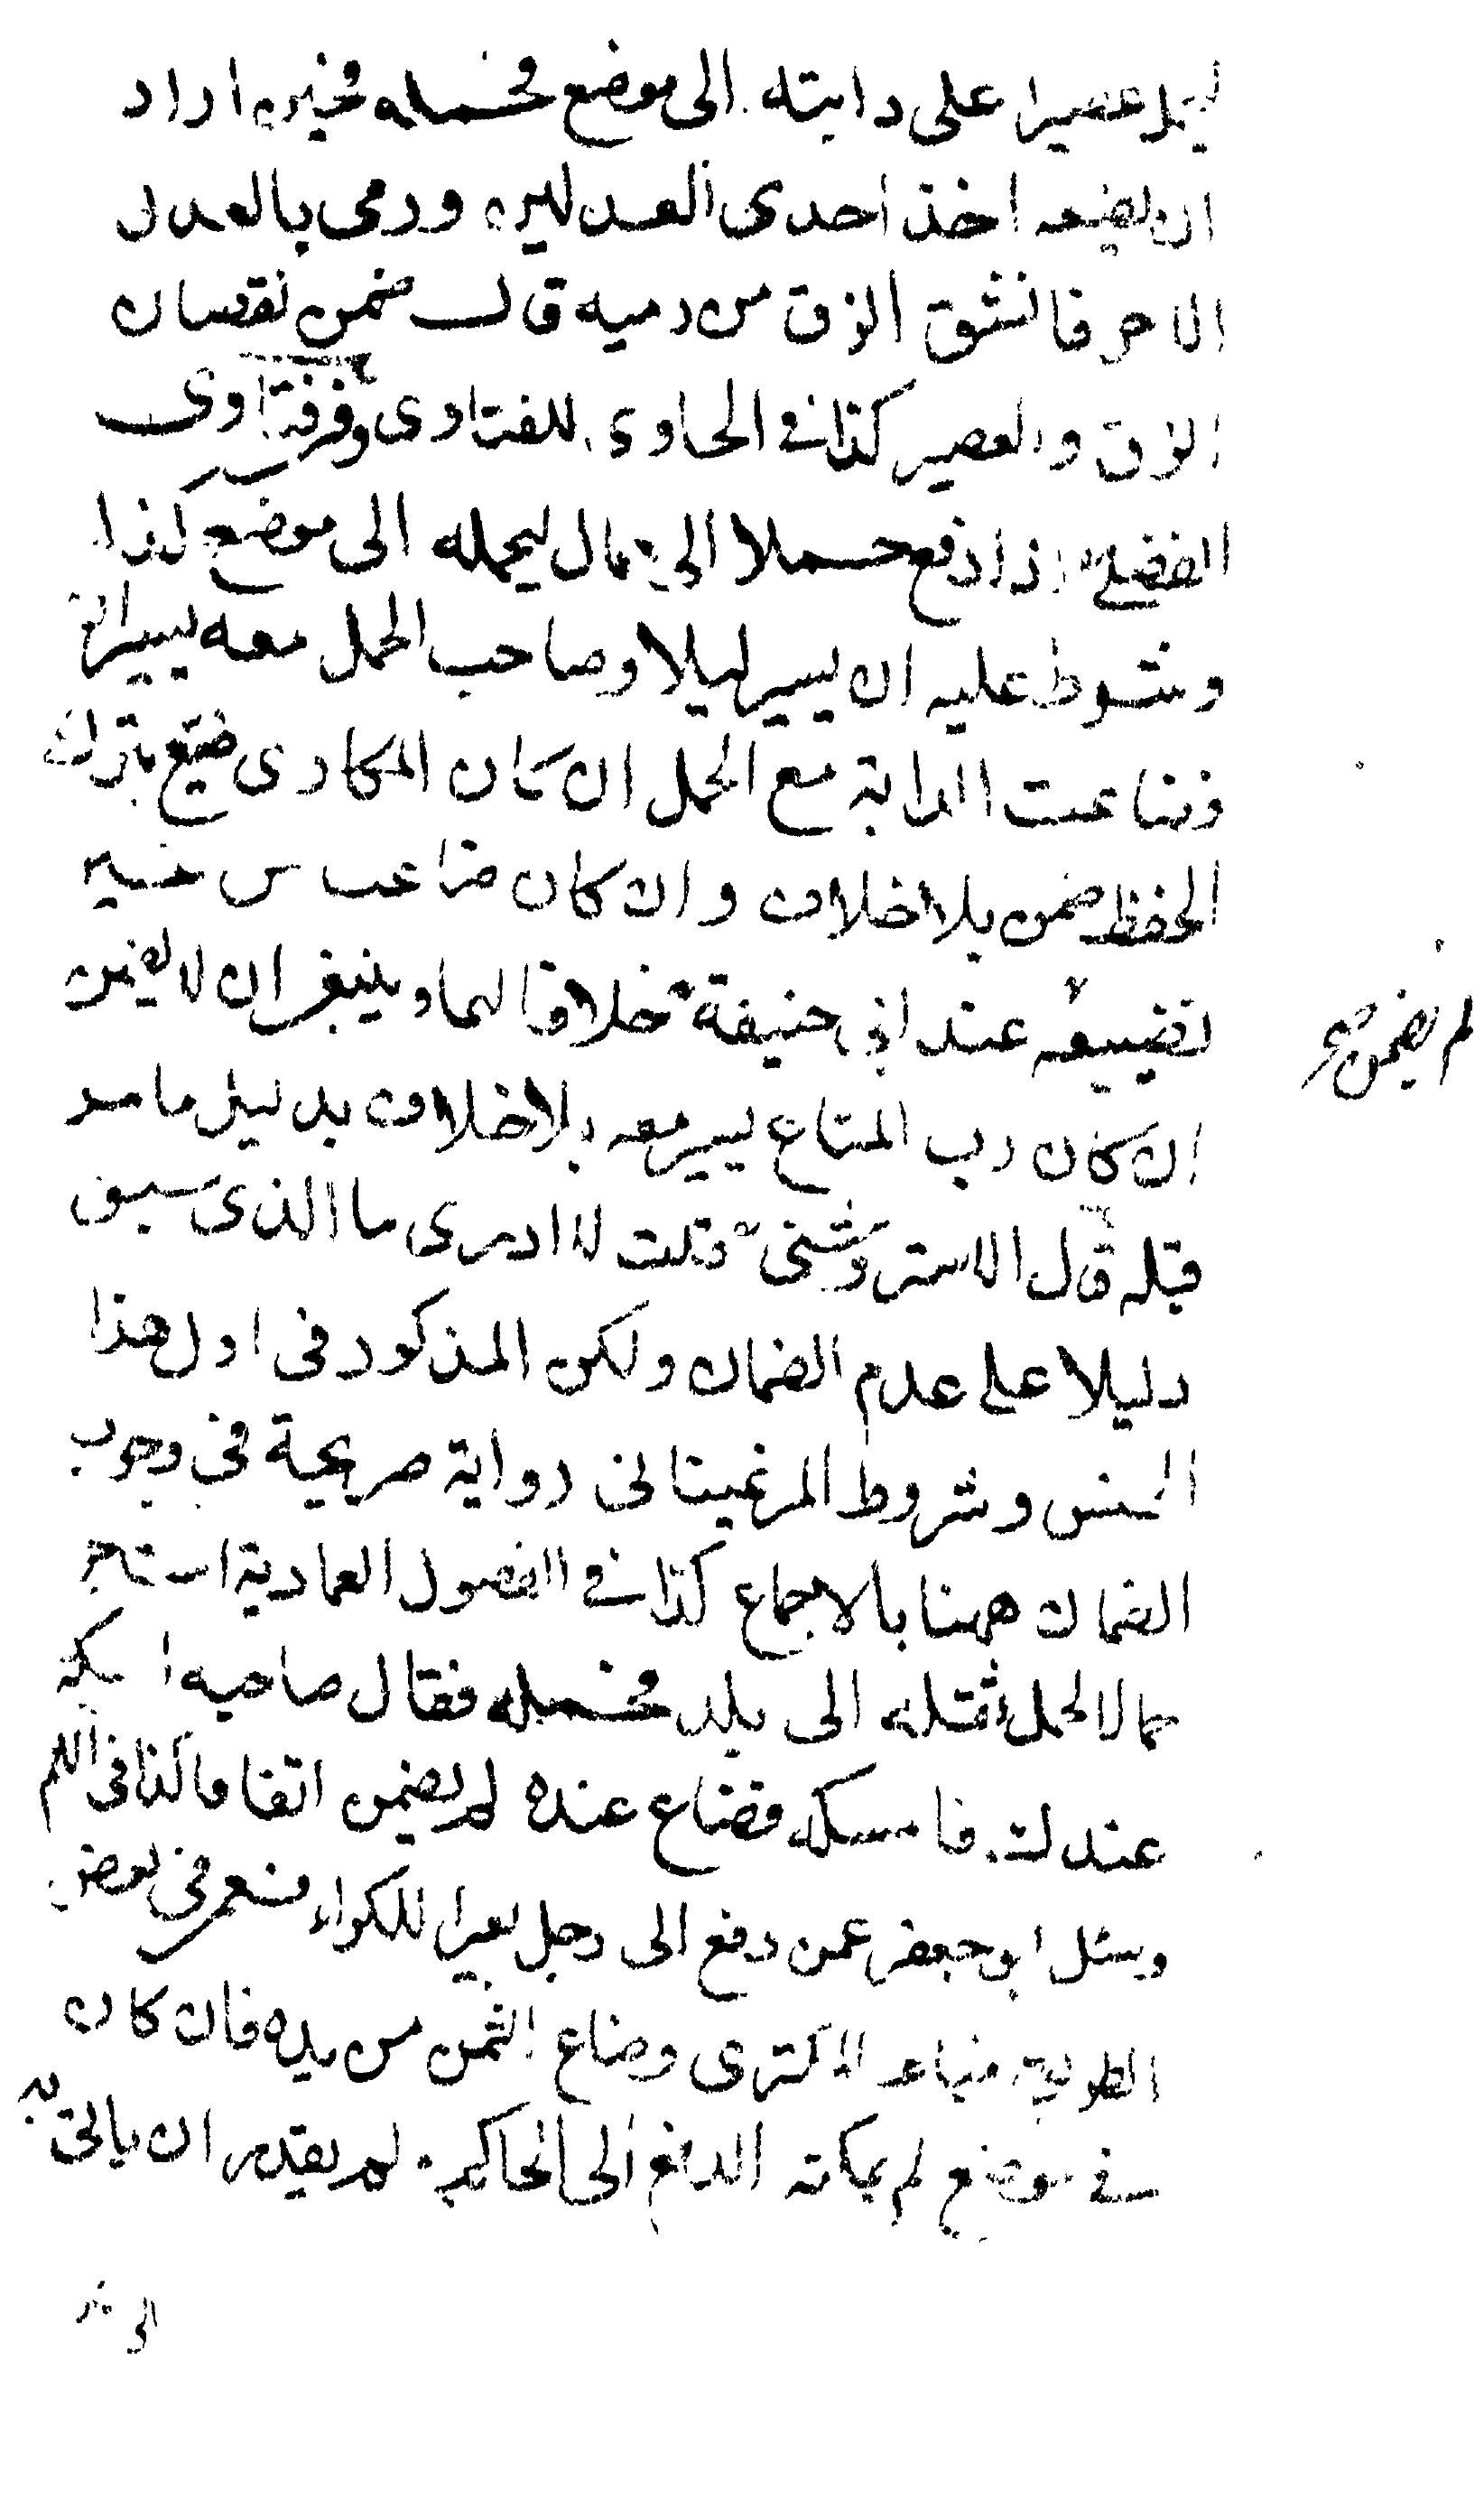 ليحمل عصيرا على دابته الى موضع فحمله فحين اراد
ان يضعه اخذ احدى العدلين ورمى بالعدل
الاخر فانشق الزق من رميه قال ضمن نقصان
الزق والعصير كذا في الحاوى للفتاوى وفي فتاوى
الفضلي اذا دفع حملا الى حمال ليحمله الى موضع كذا
وشرط عليه ان يسير ليلا وصاحب الحمل معه يسيران
فضاعت الدابة مع الحمل ان كان المكارى ضيع بترك
الحفظ ضمن بلا خلاف وان كان ضاعت من غير
تضييعه عند ابى حنيفة خلافا لهما وينبغى ان لا يضمن
ان كان رب المتاع يسير معه بلا خلاف بدليل ما مر
قبله قال الاستروشنى قلت لا ادرى ما الذى سبق
دليلا على عدم الضمان ولكن المذكور فى اول هذا
الجنس وشروط المرغينانى رواية صريحة فى وجوب
الضمان ههنا بالاجماع كذا فى الفصول العمادية استاجر
حمالا لحمل ثقله الى بلد فحمله فقال صاحبه امسكه
عندك فامسكه فضاع عنده لم يضمن اتفاقا كذا فى
وسئل ابو جعفر عمن دفع الى رجل بعيرا للكراء فعمى فى بعض
الطريق فباعه المكترى وضاع الثمن من يده فان كان
فى موضع لم يمكنه الدفع الى الحاكم لم يقدر ان ياتى به
لم يضمن صح